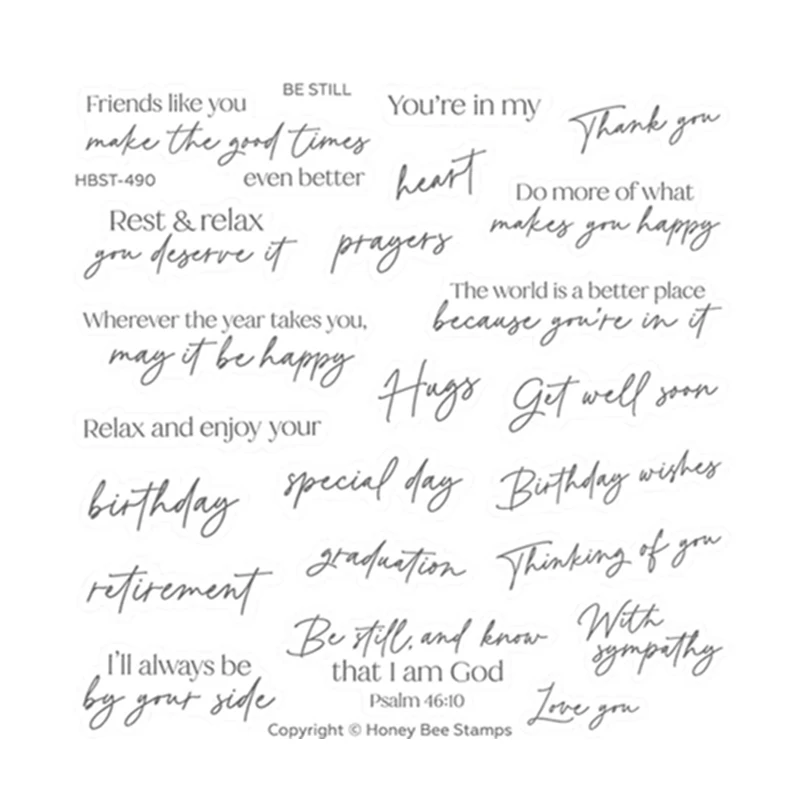 BE STILL
Friends like you
make the good times
even better
HBST-490
You're in my
heart
prayers
Thank you
Do more of what
makes you happy
Rest & relax
you deserve it
The world is a better place
because you're in it
Wherever the year takes you,
may it be happy
Hugs
Get well soon
Relax and enjoy your
birthday
special day
Birthday wishes
retirement
graduation
Thinking of you
Be still, and know
that I am God
Psalm 46:10
With
sympathy
I'll always be
by your side
Love you
Copyright © Honey Bee Stamps